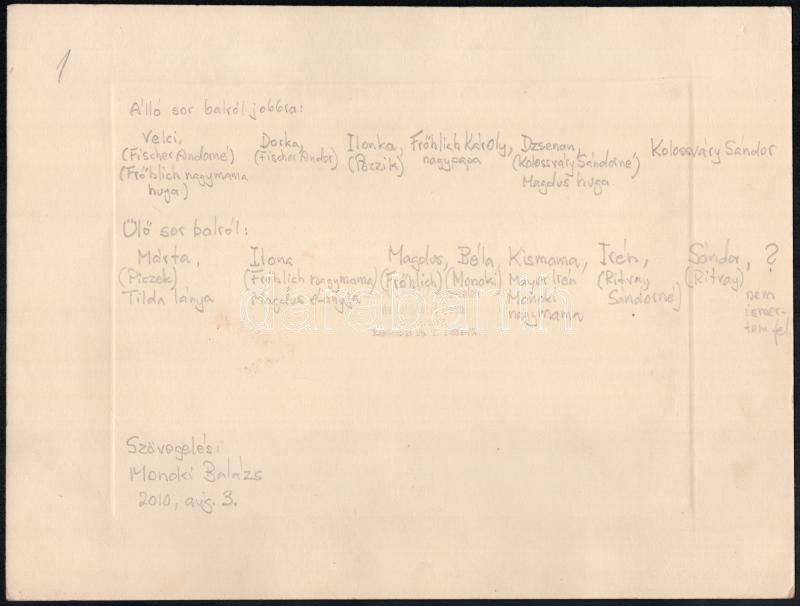 1
Álló sor balról jobbra:
Velci, Dorka, Ilonka, Fröhlich Károly, Dzsenan, Kolossváry Sándor
(Fischer Andorné) (Fischer Andor) (Pozzik) nagypapa (Kolossváry Sándorné)
(Fröhlich nagymama huga) Magdus huga.
Ülő sor balról:
Márta, Ilona Magdus, Béla, Kismama, Irén, Sándor, ?
(Piczek) (Fröhlich nagymama) (Fröhlich) (Monoki) Mayer Irén (Ritvay Sándorné) (Ritvay) nem ismertem fel
Tilda lánya Magdus anyja Monoki nagymama
darabanth
Szövegelés:
Monoki Balázs
2010, aug. 3.